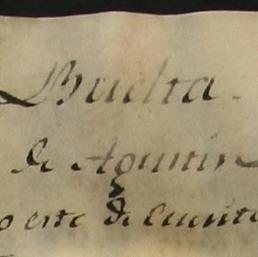 Buelta.
de Agustin
o este de Cuenta